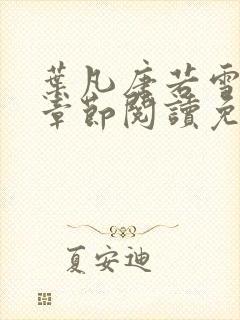 葉凡唐若雪
章節閱讀免
夏安迪